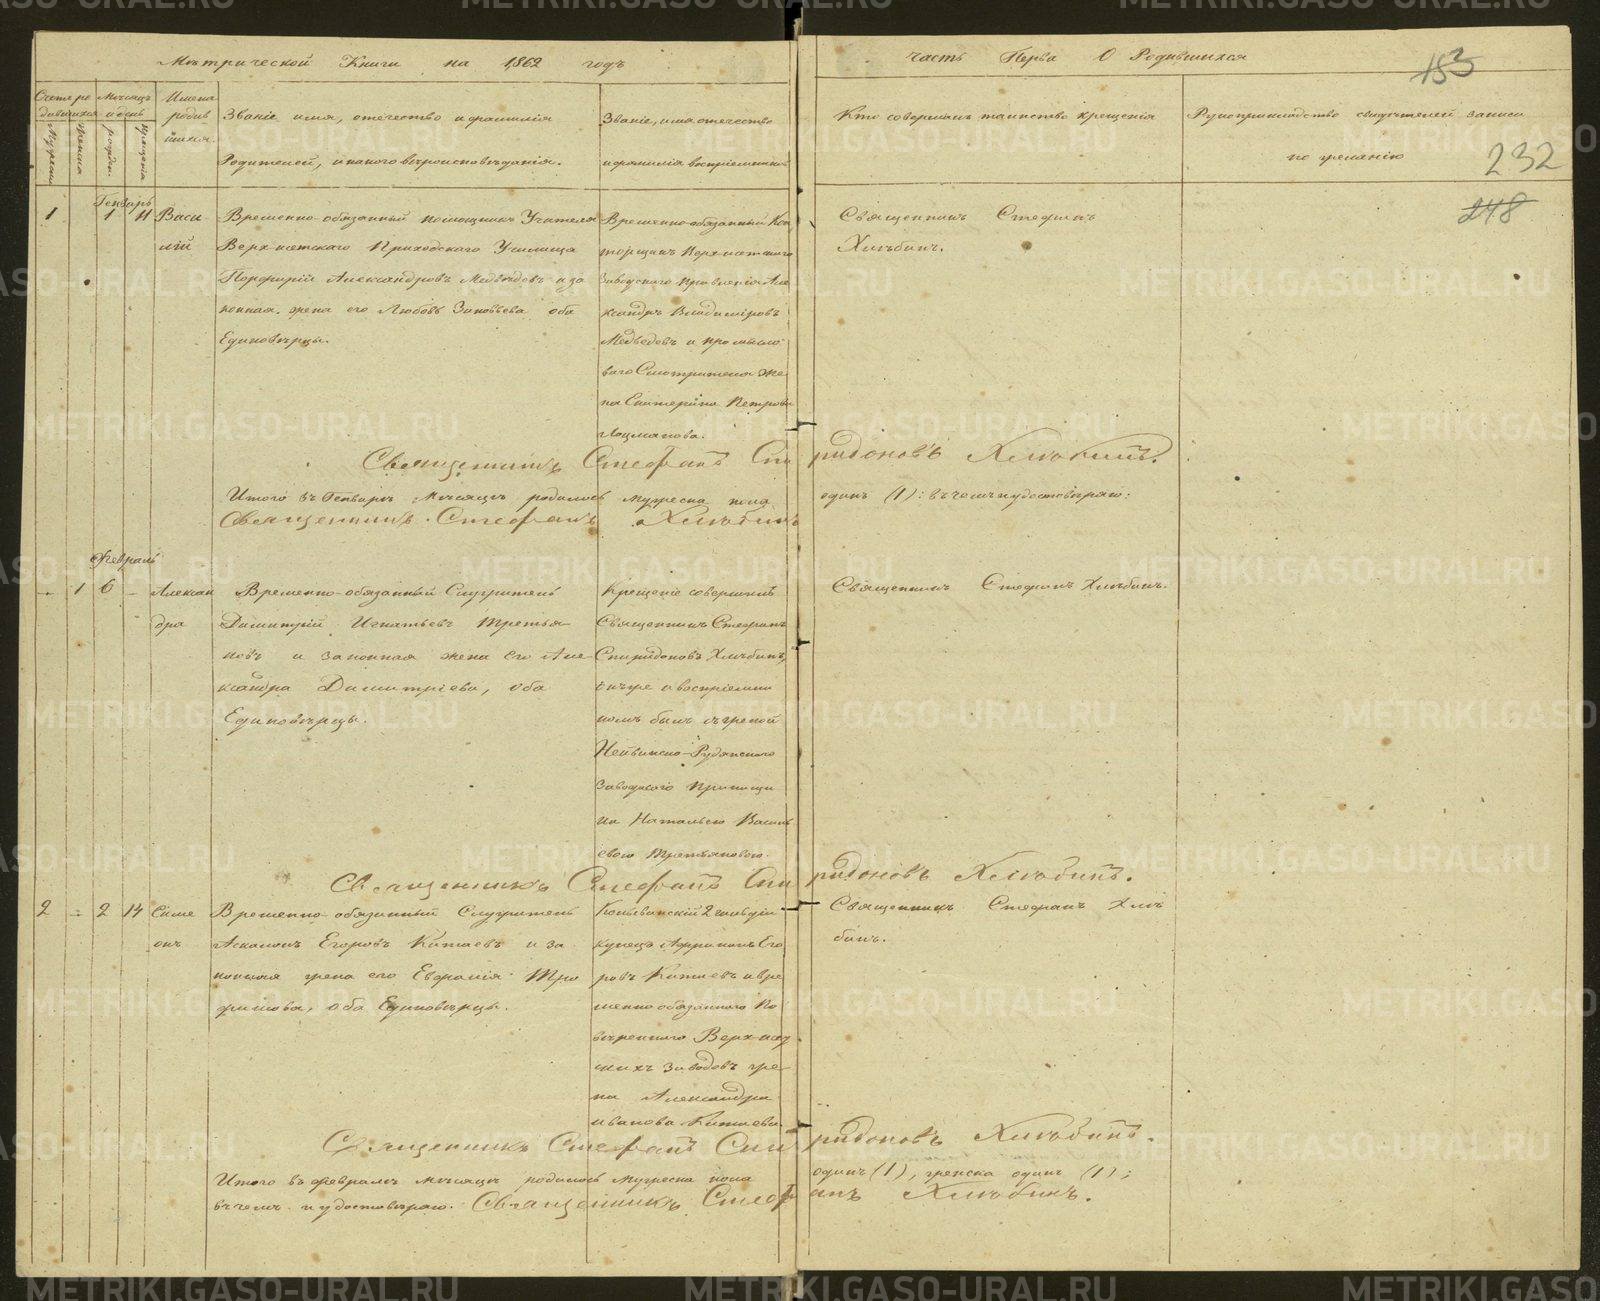 Метрической Книги на 1862 годъ
часть Перва О Родившихся
153
Счетъ родившихся
Мужеска
Женска
Мѣсяцъ и день
рожден.
крещенія
Имена родившихся.
Званіе имя, отечество и фамилія
Родителей, и какого вѣроисповѣданія.
Званіе, имя отечество
и фамилія воспріемниковъ
Кто совершалъ таинство крещенія
Рукоприкладство свидѣтелей записи
по желанію
232
248
Генварь
1 1 11 Васи
лій
Временно-обязанный помощникъ Учителя
Верх-исетскаго Приходскаго Училища
Порфирій Александровъ Медвѣдевъ и за
конная жена его Любовь Зиновьева оба
Единовѣрцы.
Временно-обязанный Кон
торщикъ Верх-исетскаго
Заводскаго Правленія Але
ксандръ Владиміровъ
Медведевъ и промысло
ваго Смотрителя же
на Екатерина Петрова
Лоцманова.
Священникъ Стефанъ
Хлѣбинъ.
Священникъ Стефанъ Спиридоновъ Хлѣбинъ.
Итого въ Генварѣ Мѣсяцѣ родилось мужеска пола одинъ (1): въ чемъ и удостовѣряю:
Священникъ Стефанъ Хлѣбинъ
Февраль
- 1 6 - Алексан
дра
Временно-обязанный Служитель
Димитрій Игнатьевъ Третья
ковъ и законная жена его Але
ксандра Димитріева, оба
Единовѣрцы.
Крещеніе совершилъ
Священникъ Стефанъ
Спиридоновъ Хлѣбинъ,
онъ же и воспріемни
комъ былъ съ женой
Нейвинско-Рудянскаго
Заводскаго Прикащи
ка Натальею Василь
евою Третьяковою.
Священникъ Стефанъ Хлѣбинъ.
Священникъ Стефанъ Спиридоновъ Хлѣбинъ.
2 - 2 14 Симе
онъ
Временно-обязанный Служитель
Аскалонъ Егоровъ Китаевъ и за
конная жена его Евфалія Тро
фимова, оба Единовѣрцы.
2 гильдіи
купецъ Африканъ Его
ровъ Китаевъ и вре
менно обязаннаго По
вѣреннаго Верх-исет
скихъ Заводовъ же
на Александра
Иванова Китаева
Священникъ Стефанъ Хлѣ
бинъ.
Священникъ Стефанъ Спиридоновъ Хлѣбинъ.
Итого въ февралѣ мѣсяцѣ родилось мужеска пола одинъ (1), женска одинъ (1);
въ чемъ и удостовѣряю. Священникъ Стефанъ Хлѣбинъ.
METRIKI.GASO-URAL.RU